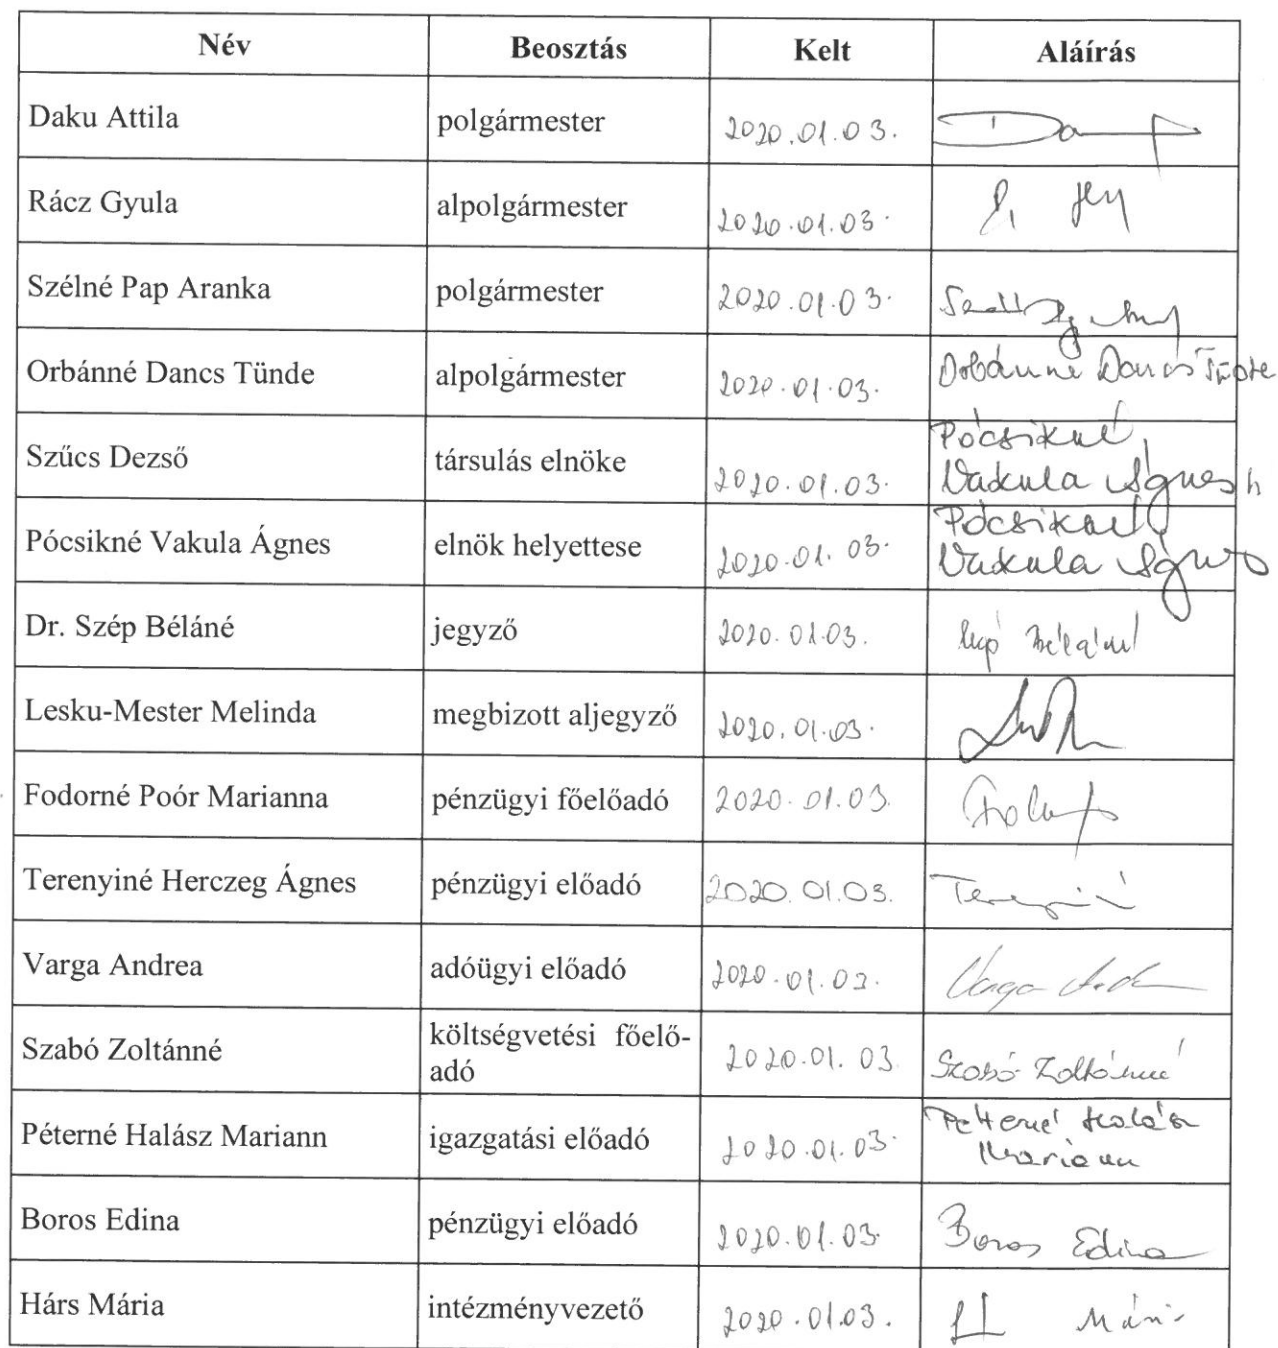 Név Beosztás Kelt Aláírás
Daku Attila polgármester 2020.01.03.
Rácz Gyula alpolgármester 2020.01.03.
Szélné Pap Aranka polgármester 2020.01.03.
Orbánné Dancs Tünde alpolgármester 2020.01.03. Orbánné Dancs Tünde
Pócsikné
Szűcs Dezső társulás elnöke 2020.01.03. Vakula Ágnes h
Pócsikné
Pócsikné Vakula Ágnes elnök helyettese 2020.01.03. Vakula Ágnes
Dr. Szép Béláné jegyző 2020.01.03. Szép Béláné
Lesku-Mester Melinda megbizott aljegyző 2020.01.03.
Fodorné Poór Marianna pénzügyi főelőadó 2020.01.03.
Terenyiné Herczeg Ágnes pénzügyi előadó 2020.01.03. Terenyiné
Varga Andrea adóügyi előadó 2020.01.03. Varga Andrea
költségvetési főelő-
Szabó Zoltánné adó 2020.01.03. Szabó Zoltánné
Péterné Halász
Péterné Halász Mariann igazgatási előadó 2020.01.03. Mariann
Boros Edina pénzügyi előadó 2020.01.03. Boros Edina
Hárs Mária intézményvezető 2020.01.03. H Mári